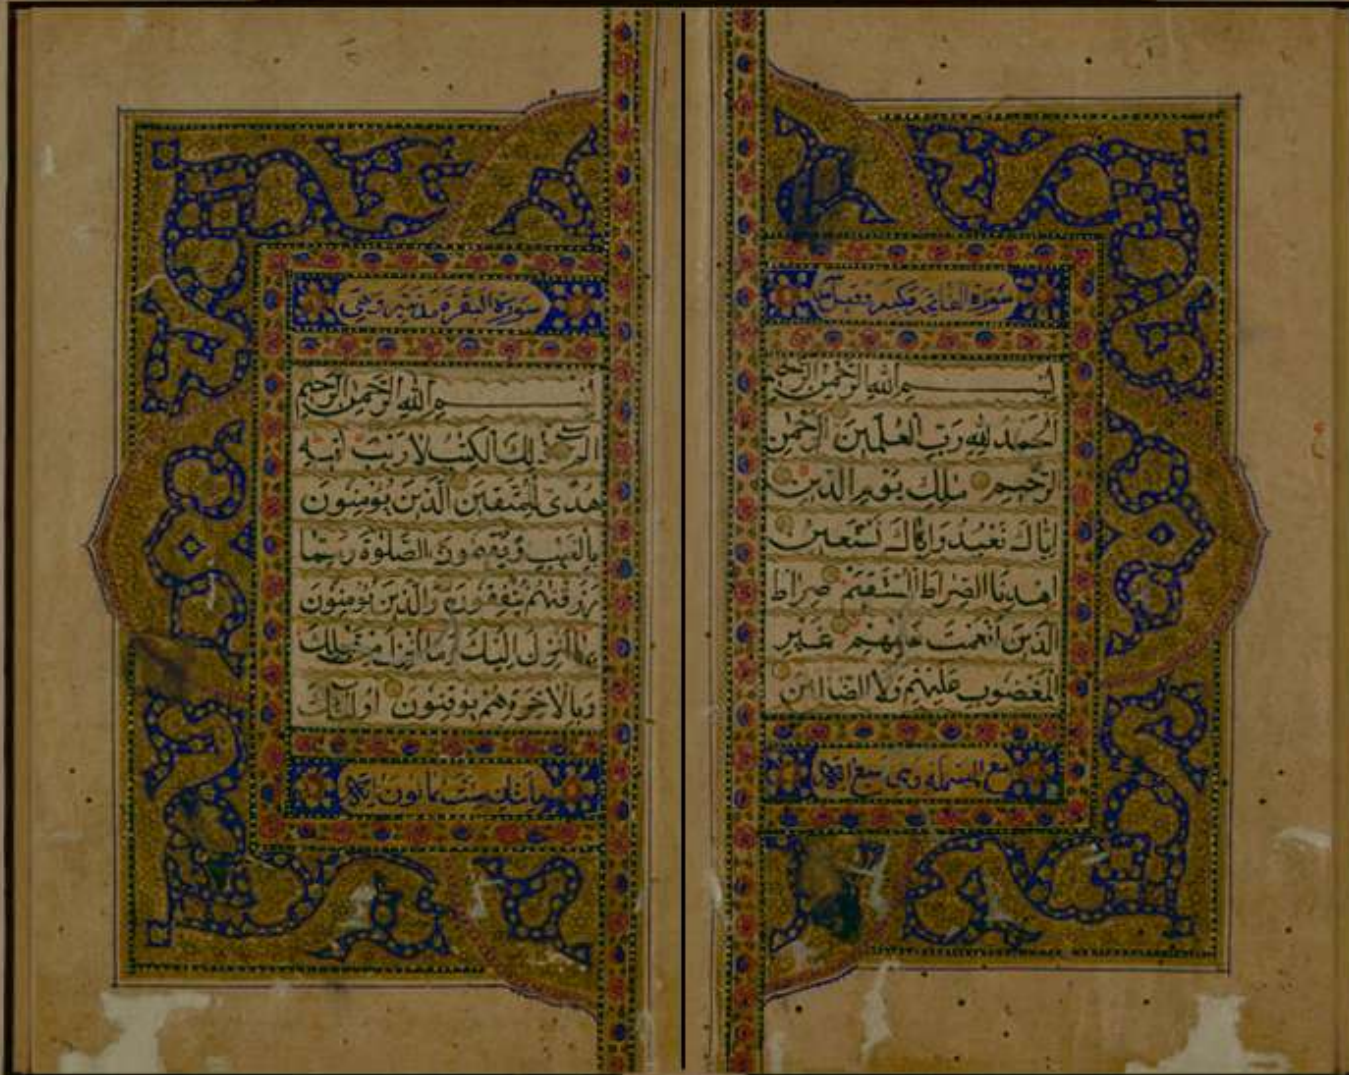 سورة الفاتحة مكية وقيل
بسم الله الرحمن الرحيم
الحمد لله رب العلمين الرحمن
الرحيم ملك يوم الدين
اياك نعبد واياك نستعين
اهدنا الصراط المستقيم صراط
الذين انعمت عليهم غير
المغضوب عليهم ولا الضالين
مع البسملة وهى سبع
سورة البقرة مدنية وهى
بسم الله الرحمن الرحيم
الم ذلك الكتب لا ريب فيه
هدى للمتقين الذين يؤمنون
بالغيب ويقيمون الصلوة ومما
رزقنهم ينفقون والذين يؤمنون
بما انزل اليك وما انزل من قبلك
وبالاخرة هم يوقنون اولئك
مائتان ست ثمانون